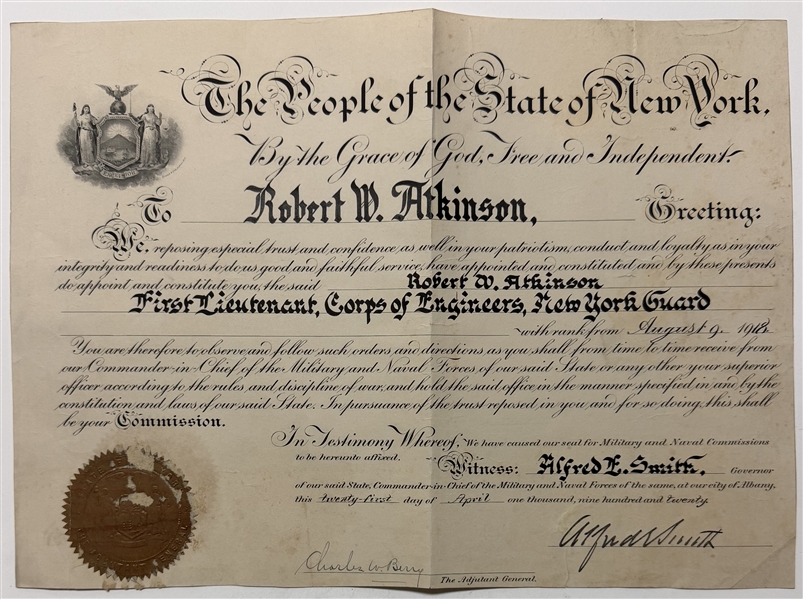 The People of the State of New York,
By the Grace of God, Free and Independent:
EXCELSIOR
To Robert W. Atkinson, Greeting:
We, reposing especial trust and confidence, as well in your patriotism, conduct and loyalty as in your
integrity and readiness to do us good and faithful service, have appointed and constituted and by these presents
do appoint and constitute you, the said Robert W. Atkinson
First Lieutenant, Corps of Engineers, New York Guard
with rank from August 9, 1918
You are therefore to observe and follow such orders and directions as you shall from time to time receive from
our Commander-in-Chief of the Military and Naval Forces of our said State or any other your superior
officer according to the rules and discipline of war, and hold the said office in the manner specified in and by the
constitution and laws of our said State. In pursuance of the trust reposed in you and for so doing, this shall
be your Commission.
In Testimony Whereof, We have caused our seal for Military and Naval Commissions
to be hereunto affixed. Witness: Alfred E. Smith, Governor
of our said State, Commander-in-Chief of the Military and Naval Forces of the same, at our city of Albany,
this twenty-first day of April one thousand, nine hundred and twenty.
Alfred E Smith
Charles W. Berry
The Adjutant General.